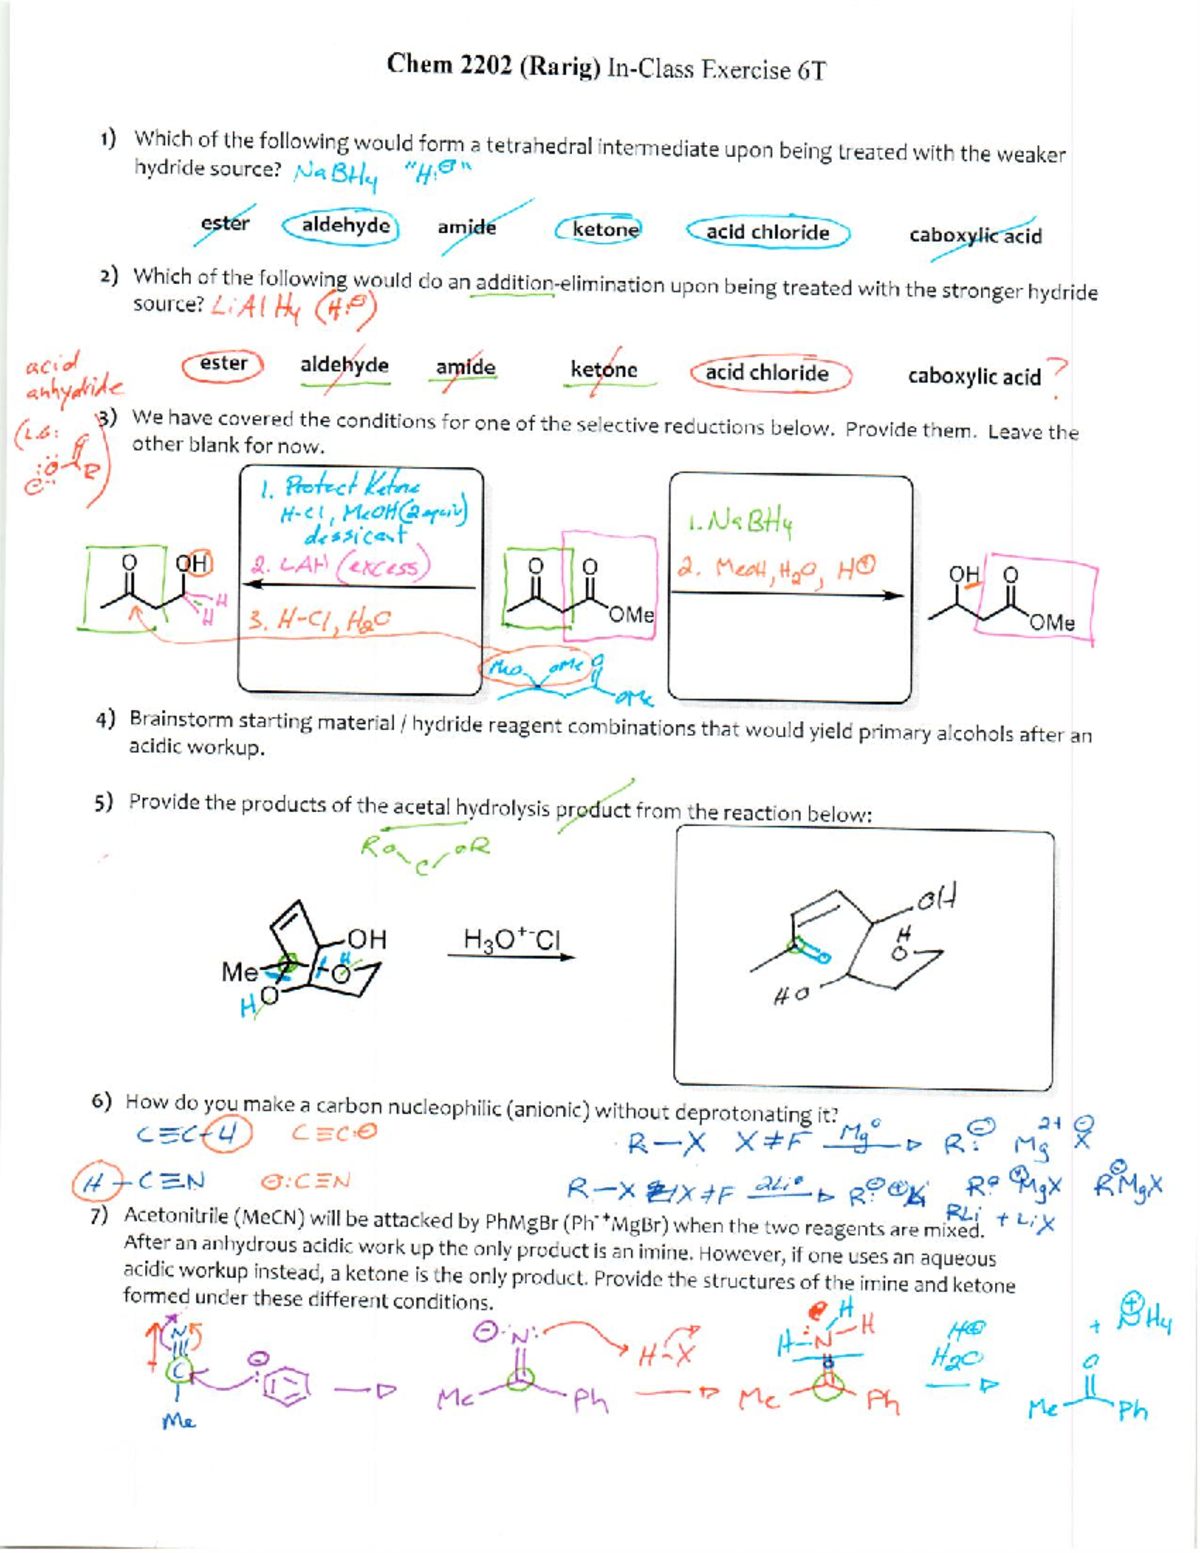 Chem 2202 (Rarig) In-Class Exercise 6T
1) Which of the following would form a tetrahedral intermediate upon being treated with the weaker
hydride source? NaBH4 "H:⊖"
ester aldehyde amide ketone acid chloride caboxylic acid
2) Which of the following would do an addition-elimination upon being treated with the stronger hydride
source? LiAlH4 (H:⊖)
acid
anhydride
ester aldehyde amide ketone acid chloride caboxylic acid ?
3) We have covered the conditions for one of the selective reductions below. Provide them. Leave the
other blank for now.
1. Protect Ketone
H-Cl, MeOH (2 equiv)
dessicant
2. LAH (excess)
3. H-Cl, H2O
O OH
H
H
O O
OMe
1. NaBH4
2. MeOH, H2O, H⊕
OH O
OMe
MeO OMe O
OMe
4) Brainstorm starting material / hydride reagent combinations that would yield primary alcohols after an
acidic workup.
5) Provide the products of the acetal hydrolysis product from the reaction below:
RO C OR
OH
Me O H
HO
H3O+-Cl
OH
H
O
O
HO
6) How do you make a carbon nucleophilic (anionic) without deprotonating it?
C≡C-H C≡C:⊖ R-X X≠F Mg° R:⊖ Mg 2+ ⊖ X
H-C≡N ⊖:C≡N R-X X≠F 2Li° R:⊖ R⊖ ⊕MgX RMgX
RLi + LiX
7) Acetonitrile (MeCN) will be attacked by PhMgBr (Ph-+MgBr) when the two reagents are mixed.
After an anhydrous acidic work up the only product is an imine. However, if one uses an aqueous
acidic workup instead, a ketone is the only product. Provide the structures of the imine and ketone
formed under these different conditions.
N
C
Me
⊖:N:
Me Ph
H-X
H
H-N-H
Me Ph
H⊕
H2O
+ ⊕NH4
O
Me Ph